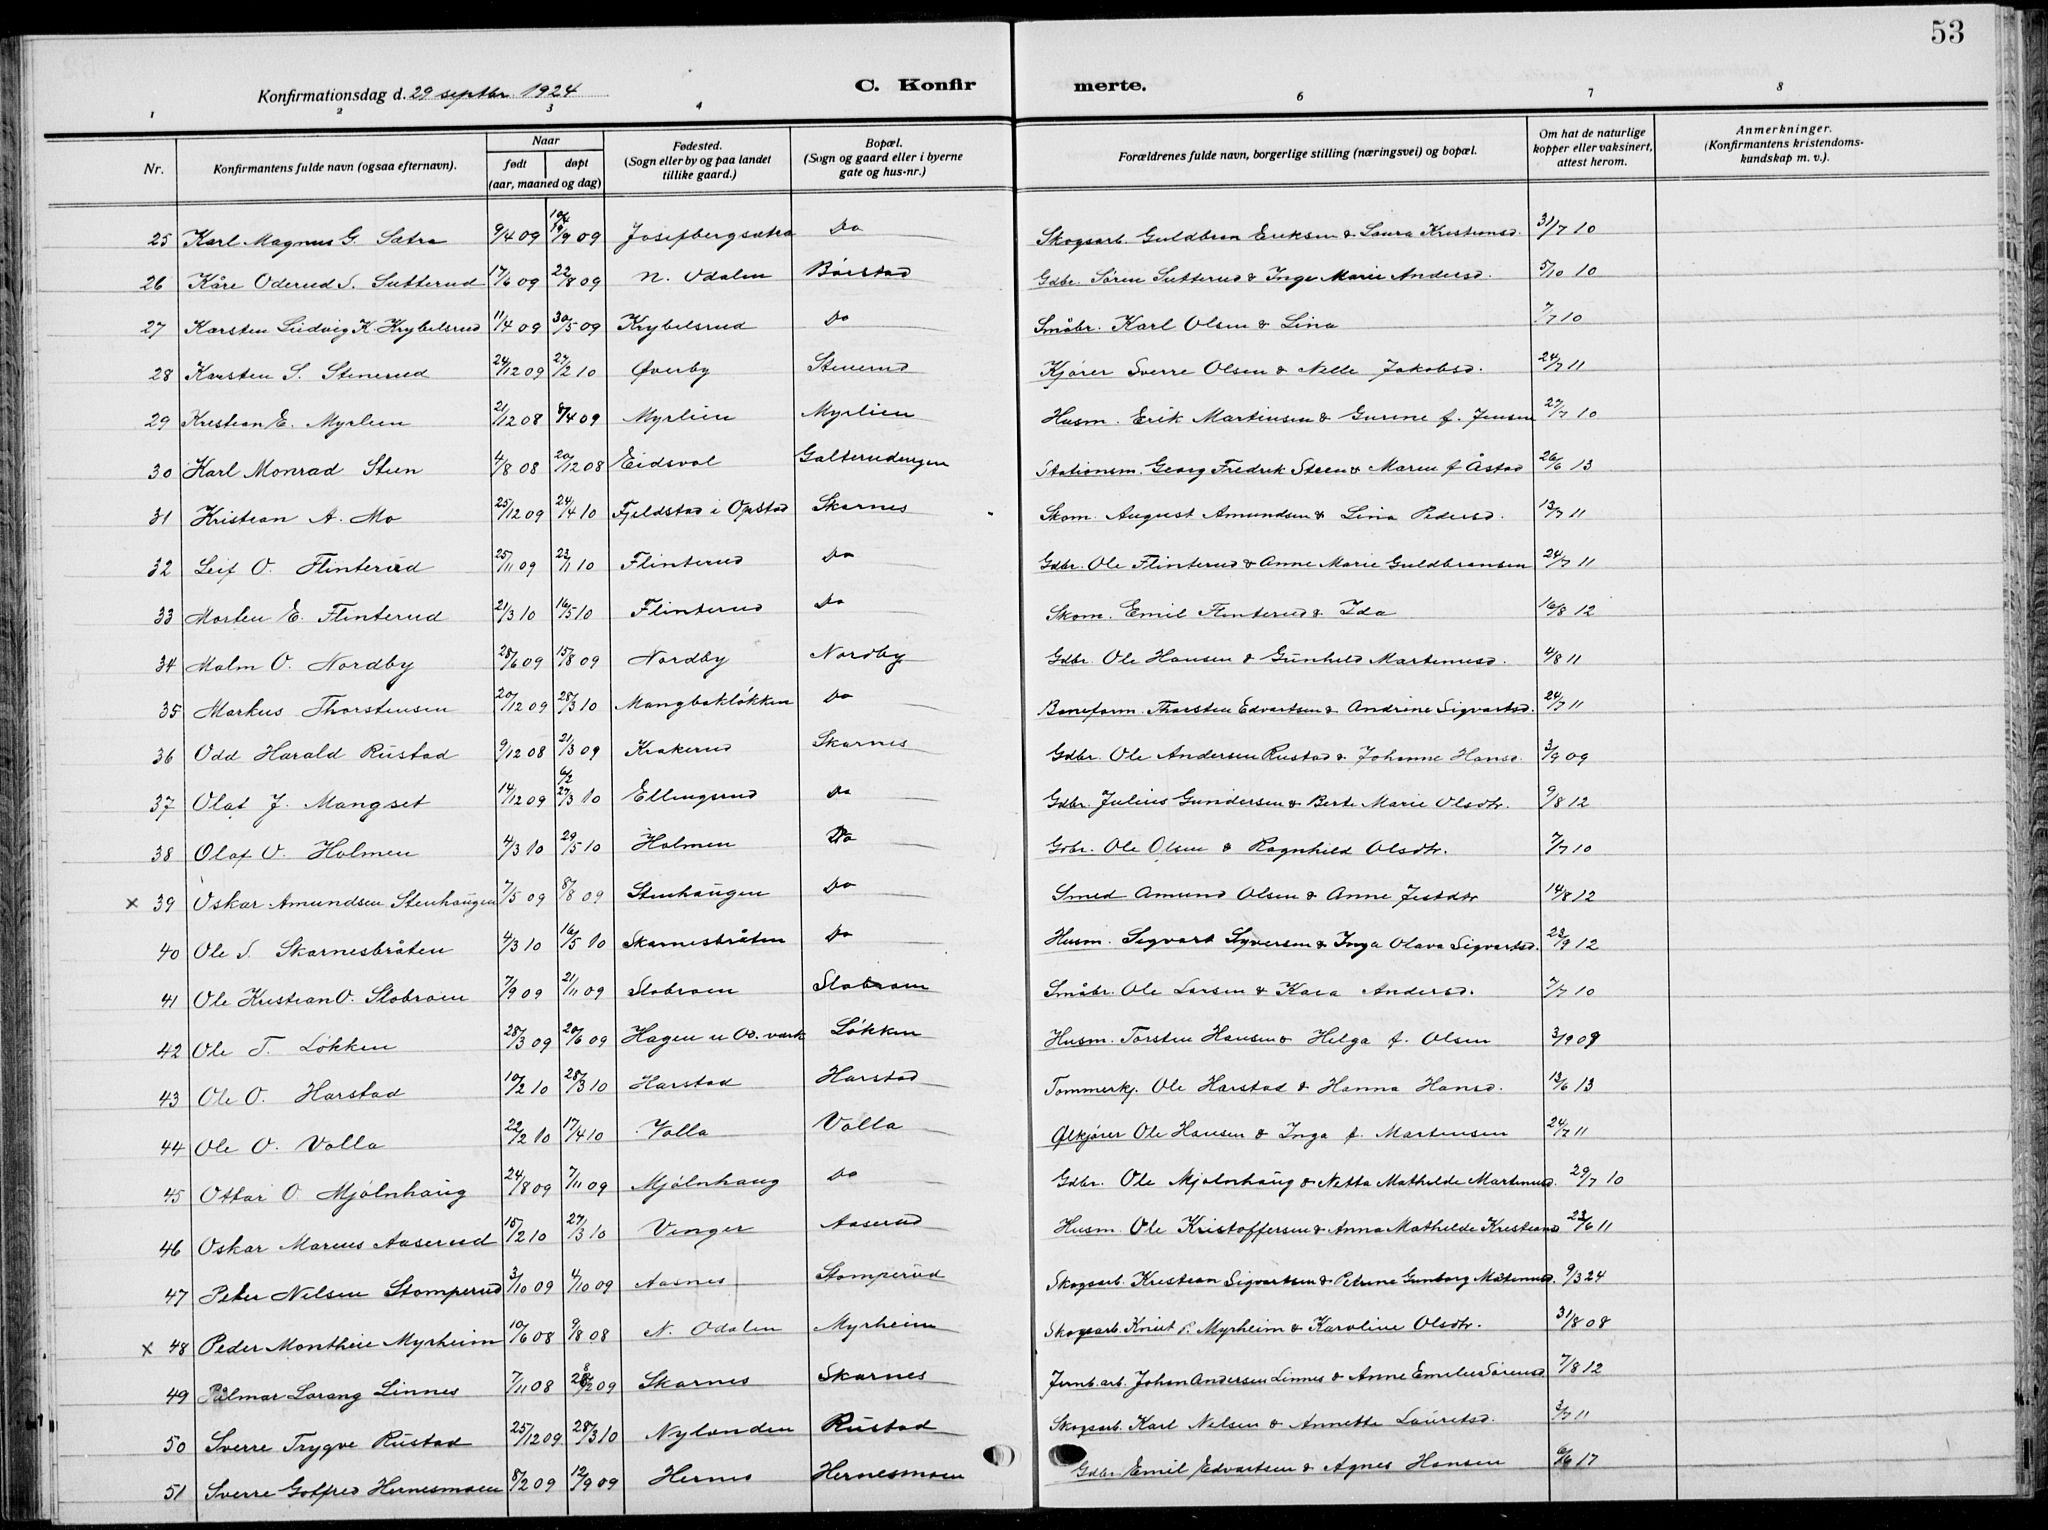 53
Konfirmationsdag d. 29 septbr. 1924 C. Konfir merte.
1 2 3 4 6 7 8
Nr. Konfirmantens fulde navn (ogsaa efternavn). Naar født døpt (aar, maaned og dag) Fødested. (Sogn eller by og paa landet tillike gaard.) Bopæl. (Sogn og gaard eller i byerne gate og hus-nr.) Forældrenes fulde navn, borgerlige stilling (næringsvei) og bopæl. Om hat de naturlige kopper eller vaksinert, attest herom. Anmerkninger. (Konfirmantens kristendoms-kundskap m. v.).
25 Karl Magnus G. Sætra 9/4 09 19/9 09 Josefbergsætra Do Skogsarb. Guldbran Eriksen & Laura Kristiansd. 31/7 10
26 Kåre Oderud S. Sutterud 17/6 09 22/8 09 N. Odalen Børstad Gdbr. Sören Sutterud & Inge Marie Andersd. 5/10 10
27 Karsten Ludvig K. Krybelsrud 11/4 09 30/5 09 Krybelsrud Do Småbr. Karl Olsen & Lina 7/7 10
28 Karsten S. Stenerud 24/12 09 27/2 10 Øverby Stenerud Kjörer Sverre Olsen & Nelle Jakobsd. 24/7 11
29 Kristian E. Myrlien 21/12 08 8/4 09 Myrlien Myrlien Husm. Erik Martinsen & Gurine f. Jensen 27/7 10
30 Karl Monrad Steen 4/8 08 20/12 08 Eidsvol Galterudengen Stationsm. Georg Fredrik Steen & Maren f Åstad 26/6 13
31 Kristian A. Mo 25/12 09 24/4 10 Fjeldstad i Opstad Skarnes Skom. August Amundsen & Lina Pedersd. 13/7 11
32 Leif O. Flinterud 25/11 09 23/1 10 Flinterud Do Gdbr. Ole Flinterud & Anne Marie Guldbransen 24/7 11
33 Morten E. Flinterud 21/3 10 16/5 10 Flinterud Do Skom. Emil Flinterud & Ida 16/8 12
34 Malm O. Nordby 28/6 09 15/8 09 Nordby Nordby Gdbr. Ole Hansen & Gunhild Martinusd. 4/8 11
35 Markus Thorstensen 20/12 09 28/3 10 Mangbakløkken Do Baneform. Thorsten Edvartsen & Andrine Sigvartsd. 24/7 11
36 Odd Harald Rustad 9/12 08 21/3 09 Krakerud Skarnes Gdbr. Ole Andersen Rustad & Johanne Hansd. 3/9 09
37 Olaf J. Mangset 14/12 09 6/2 27/3 10 Ellingsrud Do Gdbr. Julius Gundersen & Berte Marie Olsdtr. 9/8 12
38 Olaf O. Holmen 4/3 10 29/5 10 Holmen Do Gdbr. Ole Olsen & Ragnhild Olsdtr. 7/7 10
x 39 Oskar Amundsen Stenhaugen 7/5 09 8/8 09 Stenhaugen Do Smed Amund Olsen & Anne 14/8 12
40 Ole S. Skarnesbråten 4/3 10 16/5 10 Skarnesbråten Do Husm. Sigvart Syversen & Inga Olava Sigvartsd. 23/9 12
41 Ole Kristian O. Slobraen 7/9 09 21/11 09 Slobraen Slobraen Småbr. Ole Larsen & Kaia Andersd. 7/7 10
42 Ole T. Løkken 28/3 09 20/6 09 Hagen u Od. værk Løkken Husm. Torsten Hansen & Helga f. Olsen 3/9 09
43 Ole O. Harstad 10/2 10 28/3 10 Harstad Harstad Tømmerkj. Ole Harstad & Hanna Hansd. 13/6 13
44 Ole O. Volla 22/2 10 17/4 10 Volla Volla Ølkjører Ole Hansen & Inga f. Martinsen 24/7 11
45 Ottar O. Mjølnhaug 24/8 09 7/11 09 Mjølnhaug Do Gdbr. Ole Mjølnhaug & Netta Mathilde Martinusd. 29/7 10
46 Oskar Marius Aaserud 15/2 10 27/3 10 Vinger Aaserud Husm. Ole Kristoffersen & Anna Mathilde Kristiansd 23/6 11
47 Peter Nelsen Stomperud 3/10 09 4/10 09 Aasnes Stomperud Skogsarb. Kristian Sigvartsen & Petrine Gunborg 9/3 24
x 48 Peder Montheie Myrheim 10/6 08 9/8 08 N. Odalen Myrheim Skogsarb. Knut P. Myrheim & Karoline Olsdtr. 31/8 08
49 Palmar Lorang Linnes 7/11 08 28/2 09 Skarnes Skarnes Jernb.arb. Johan Andersen Linnes & Anne Emilie Sørensd 7/8 12
50 Sverre Trygve Rustad 25/12 09 28/3 10 Nylanden Rustad Skogsarb. Karl Nilsen & Annette Lauretsd. 3/7 11
51 Sverre Gotfred Hernesmoen 8/2 09 12/9 09 Hernes Hernesmoen Gdbr. Emil Edvartsen & Agnes Hansen 6/6 17